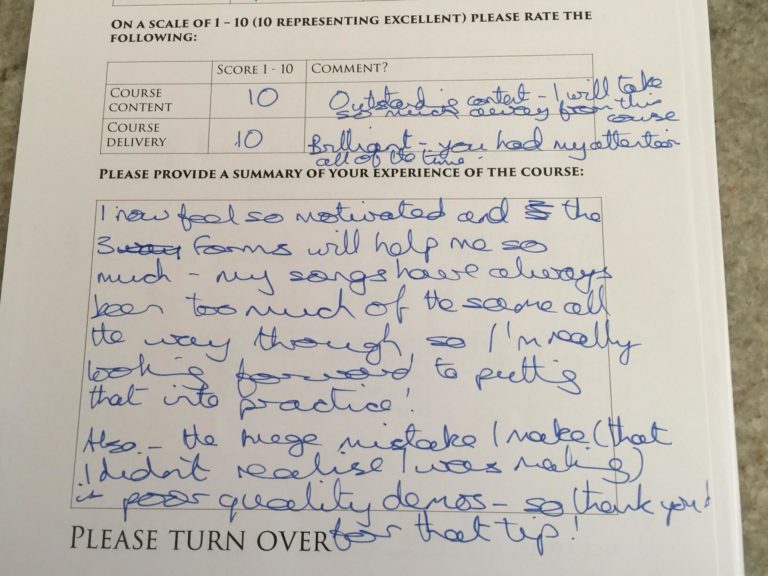 ON A SCALE OF 1 – 10 (10 REPRESENTING EXCELLENT) PLEASE RATE THE
FOLLOWING:
SCORE 1 - 10 COMMENT?
COURSE CONTENT 10 Outstanding content - I will take
so much away from this
course
COURSE DELIVERY 10 Brilliant - you had my attention
all of the time.
PLEASE PROVIDE A SUMMARY OF YOUR EXPERIENCE OF THE COURSE:
I now feel so motivated and the
3 way forms will help me so
much - my songs have always
been too much of the same all
the way though so I'm really
looking forward to putting
that into practice!
Also - the huge mistake I make (that
I didn't realise I was making)
is poor quality demos - so thank you!
for that tip!
PLEASE TURN OVER